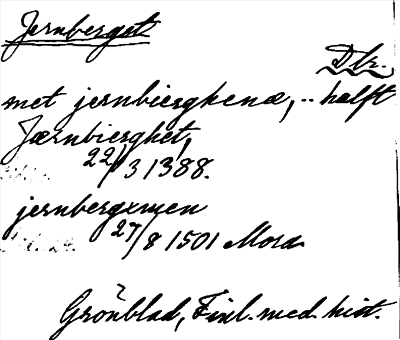 Jernberget
Dlr.
met jernbierghenæ, .. halft
Jærnbierghet,
22/3 1388.
jernbergxmen
27/8 1501 Mora
Grönblad, Finl. med. hist.